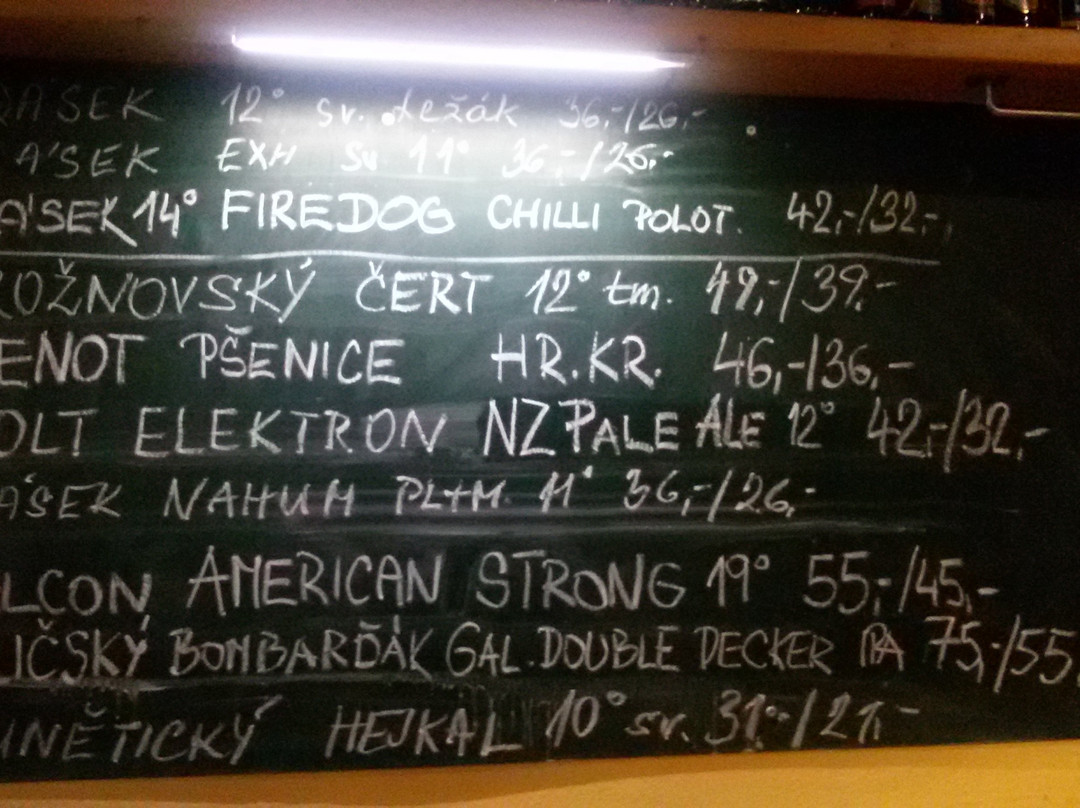 ÁSEK 12° sv. ležák 36,-/26,-
ÁSEK EXH sv 11° 36,-/26,-
ÁSEK 14° FIREDOG CHILLI POLOT. 42,-/32,-
OŽNOVSKÝ ČERT 12° tm. 49,-/39,-
ENOT PŠENICE HR.KR. 46,-/36,-
OLT ELEKTRON NZ PALE ALE 12° 42,-/32,-
ÁSEK NAHUM PL+M. 11° 36,-/26,-
LCON AMERICAN STRONG 19° 55,-/45,-
IČSKÝ BOMBARĎÁK GAL. DOUBLE DECKER 75,-/55
NĚTICKÝ HEJKAL 10° sv. 31,-/21,-